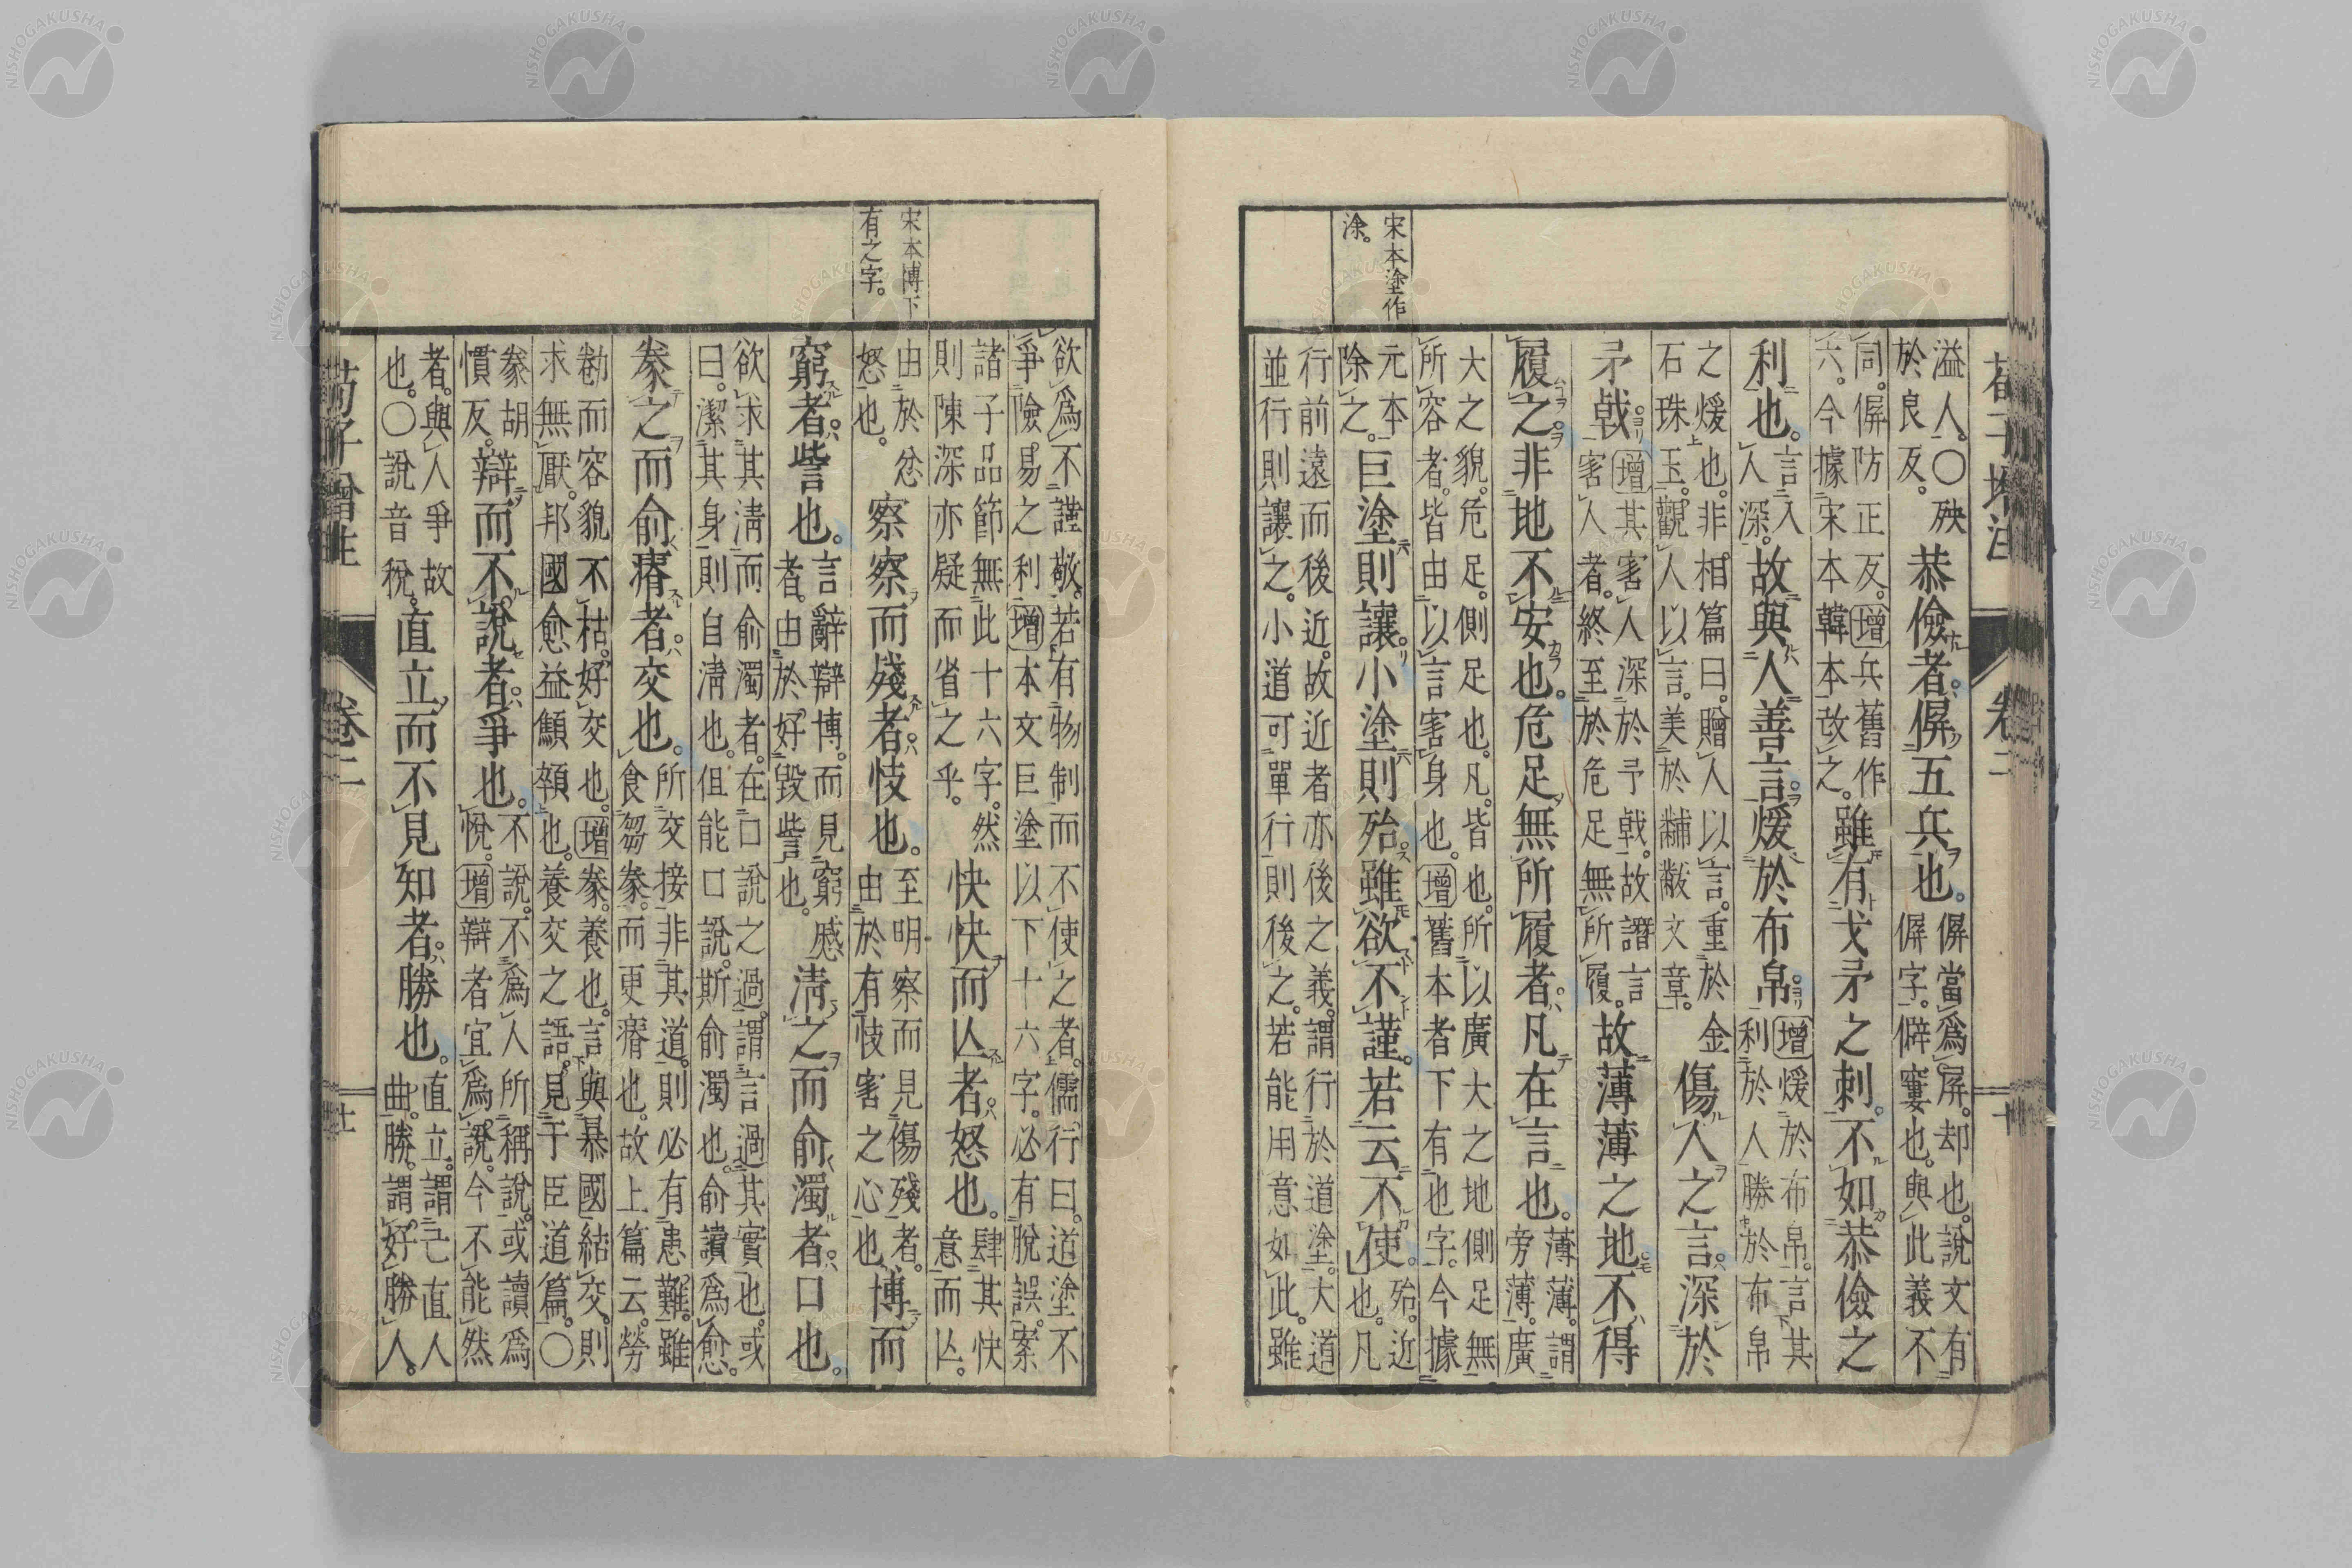 宋本塗作
涂。
荀子增注 卷二 十
溢人。〇殃
於良反。
恭儉者。偋五兵也。
偋當爲屏。却也。說文有
偋字。僻窶也。與此義不
同。偋防正反。增兵舊作
六。今據宋本韓本改之。
雖有戈矛之刺。不如恭儉之
利也。
言入
人深。
故與人善言。煖於布帛。
增煖於布帛。言其
利於人勝於布帛
之煖也。非相篇曰。贈人以言。重於金
石珠玉。觀人以言。美於黼黻文章。
傷人之言。深於
矛戟。
增其害人深於矛戟。故譖言
害人者。終至於危足無所履。
故薄薄之地不得
履之。非地不安也。危足無所履者。凡在言也。
薄薄。謂
旁薄。廣
大之貌。危足。側足也。凡。皆也。所以廣大之地側足無
所容者。皆由以言害身也。增舊本者下有也字。今據
元本
除之。
巨塗則讓。小塗則殆。雖欲不謹。若云不使。
殆。近
也。凡
行前遠而後近。故近者亦後之義。謂行於道塗。大道
並行則讓之。小道可單行則後之。若能用意如此。雖
宋本博下
有之字。
欲爲不謹敬。若有物制而不使之者。儒行曰。道塗不
爭險易之利增本文巨塗以下十六字。必有脫誤。案
諸子品節無此十六字。然
則陳深亦疑而省之乎。
快快而亾者。怒也。
肆其快
意而亾。
由於忿
怒也。
察察而殘者。忮也。
至明察而見傷殘者。
由於有忮害之心也
博而
窮者。訾也。
言辭辯博。而見窮慼
者。由於好毀訾也。
淸之而俞濁者。口也。
欲求其淸而俞濁者。在口說之過。謂言過其實也。或
曰。潔其身則自淸也。但能口說。斯俞濁也。俞讀爲愈。
豢之而俞瘠者。交也。
所交接非其道。則必有患難。雖
食芻豢。而更瘠也。故上篇云。勞
勌而容貌不枯。好交也。增豢。養也。言與暴國結交。則
求無厭。邦國愈益顦顇也。養交之語。見于臣道篇。〇
豢胡
慣反。
辯而不說者。爭也。
不說。不爲人所稱說。或讀爲
悅。增辯者宜爲說。今不能然
者。與人爭故
也。〇說音稅。
直立而不見知者。勝也。
直立。謂己直人
曲。勝。謂好勝人。
荀子增注 卷二